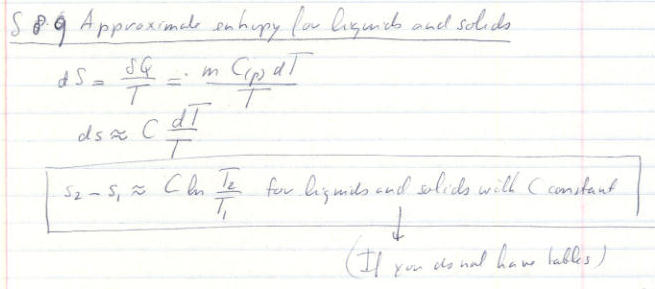 § 8.9 Approximate entropy for liquids and solids
dS = δQ/T = m C(p) dT/T
ds ≈ C dT/T
s₂ - s₁ ≈ C ln T₂/T₁ for liquids and solids with C constant
↓
(If you do not have tables)